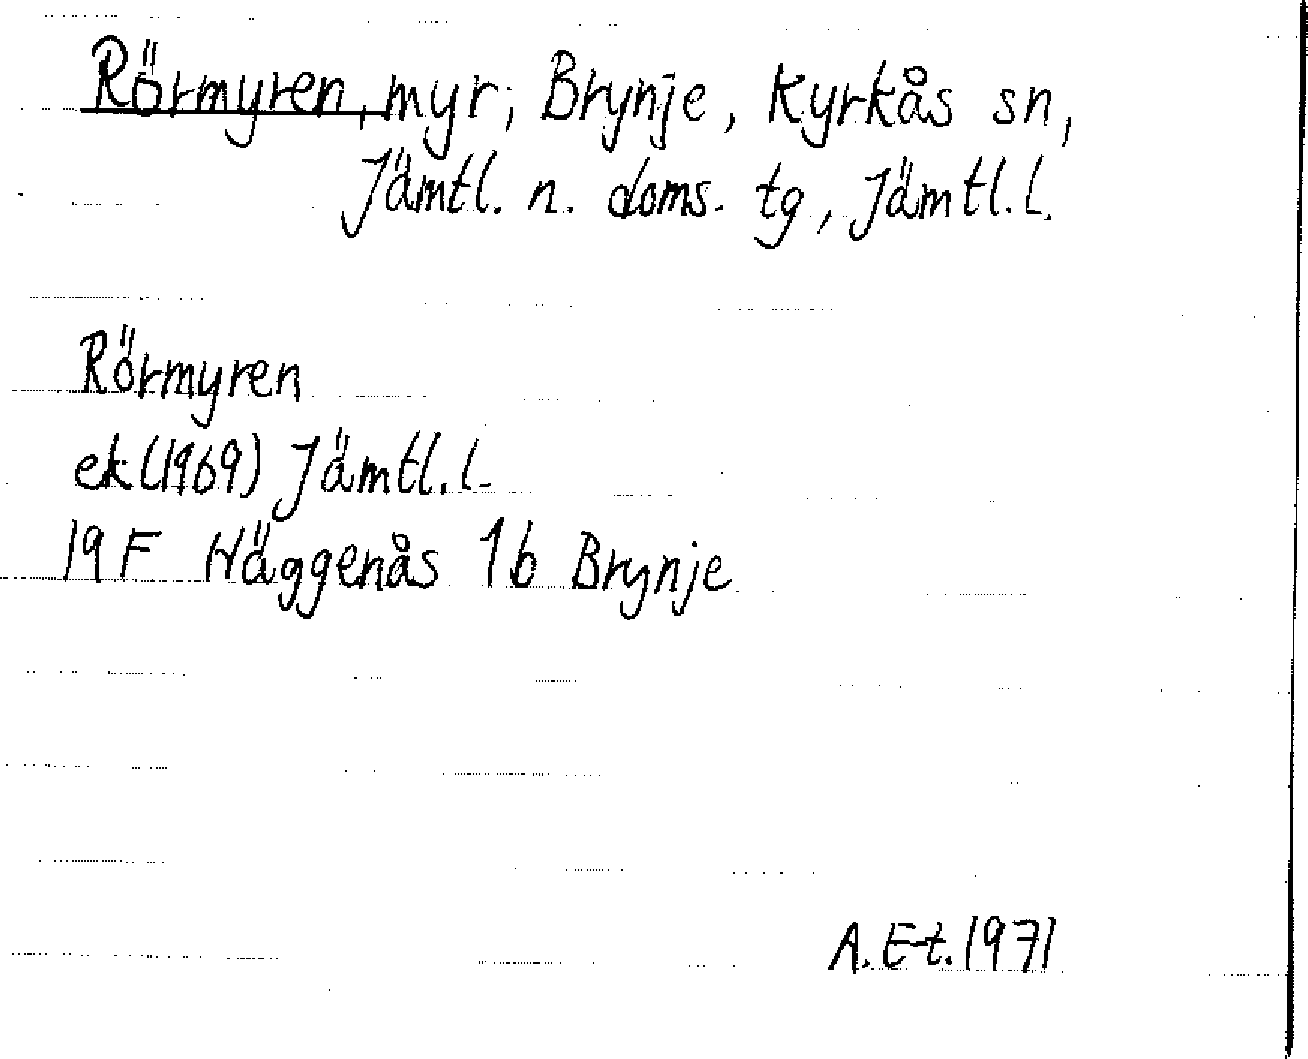 Rörmyren, myr, Brynje, Kyrkås sn,
Jämtl. n. doms. tg, Jämtl. l.
Rörmyren
ek (1969) Jämtl. l.
19 F Häggenås 1b Brynje
A. E-t. 1971